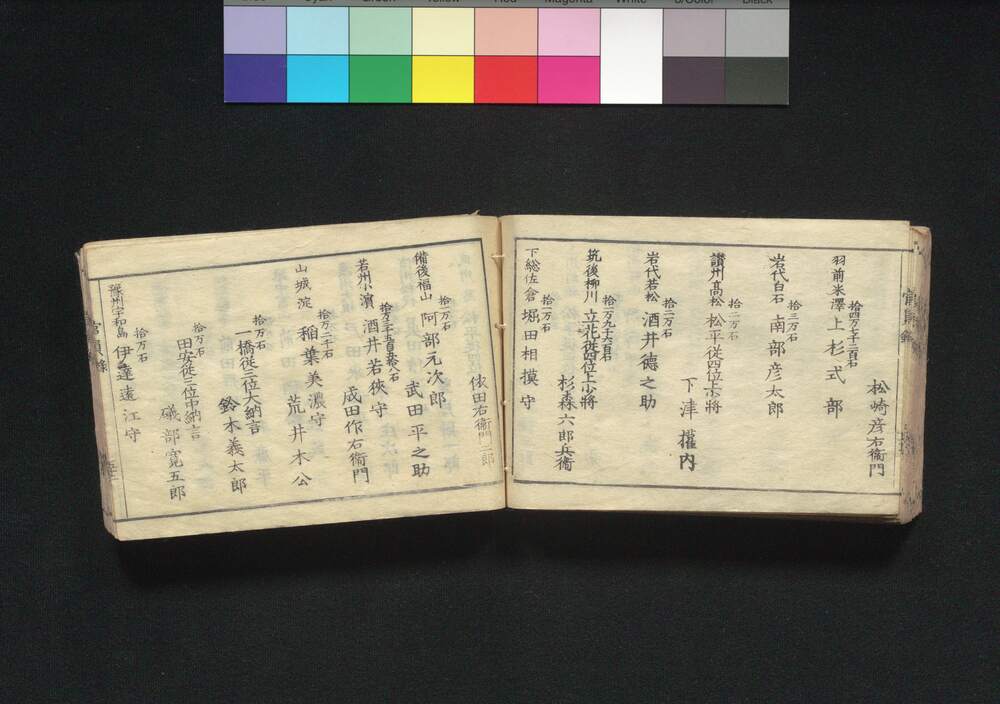 Blue Cyan Green Yellow Red Magenta White 3/Color Black
松崎彦右衞門
拾四万七千二百石
羽前米澤 上杉式部
拾三万石
岩代白石 南部彦太郎
拾二万石
讃州髙松 松平従四位上少将
下津權内
拾二万石
岩代若松 酒井德之助
拾一万九千六百石
筑後柳川 立花従四位上少将
杉森六郎兵衞
拾一万石
下総佐倉 堀田相摸守
依田右衞門二郎
拾一万石
備後福山 阿部元次郎
武田平之助
若州小濵 酒井若狹守
成田作右衞門
拾万二千石
山城淀 稲葉美濃守
荒井木公
拾万石
一橋従二位大納言
鈴木義太郎
拾万石
田安従二位中納言
礒部寛五郎
拾万石
豫州宇和島 伊達遠江守
官員錄